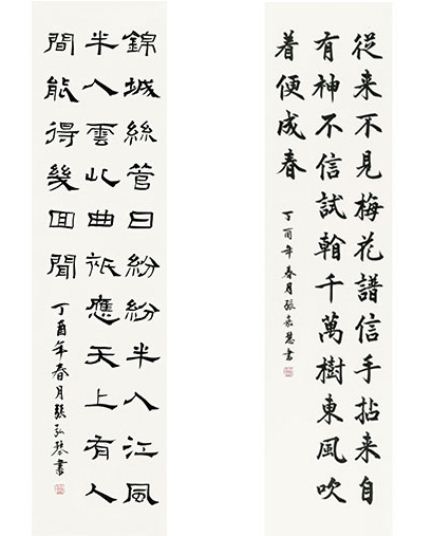 從来不見梅花譜信手拈来自
有神不信試翰千萬樹東風吹
着便成春
丁酉年春月張慧書
錦城絲管日紛紛半入江風
半入雲此曲祇應天上有人
間能得幾回聞
丁酉年春月張弘書